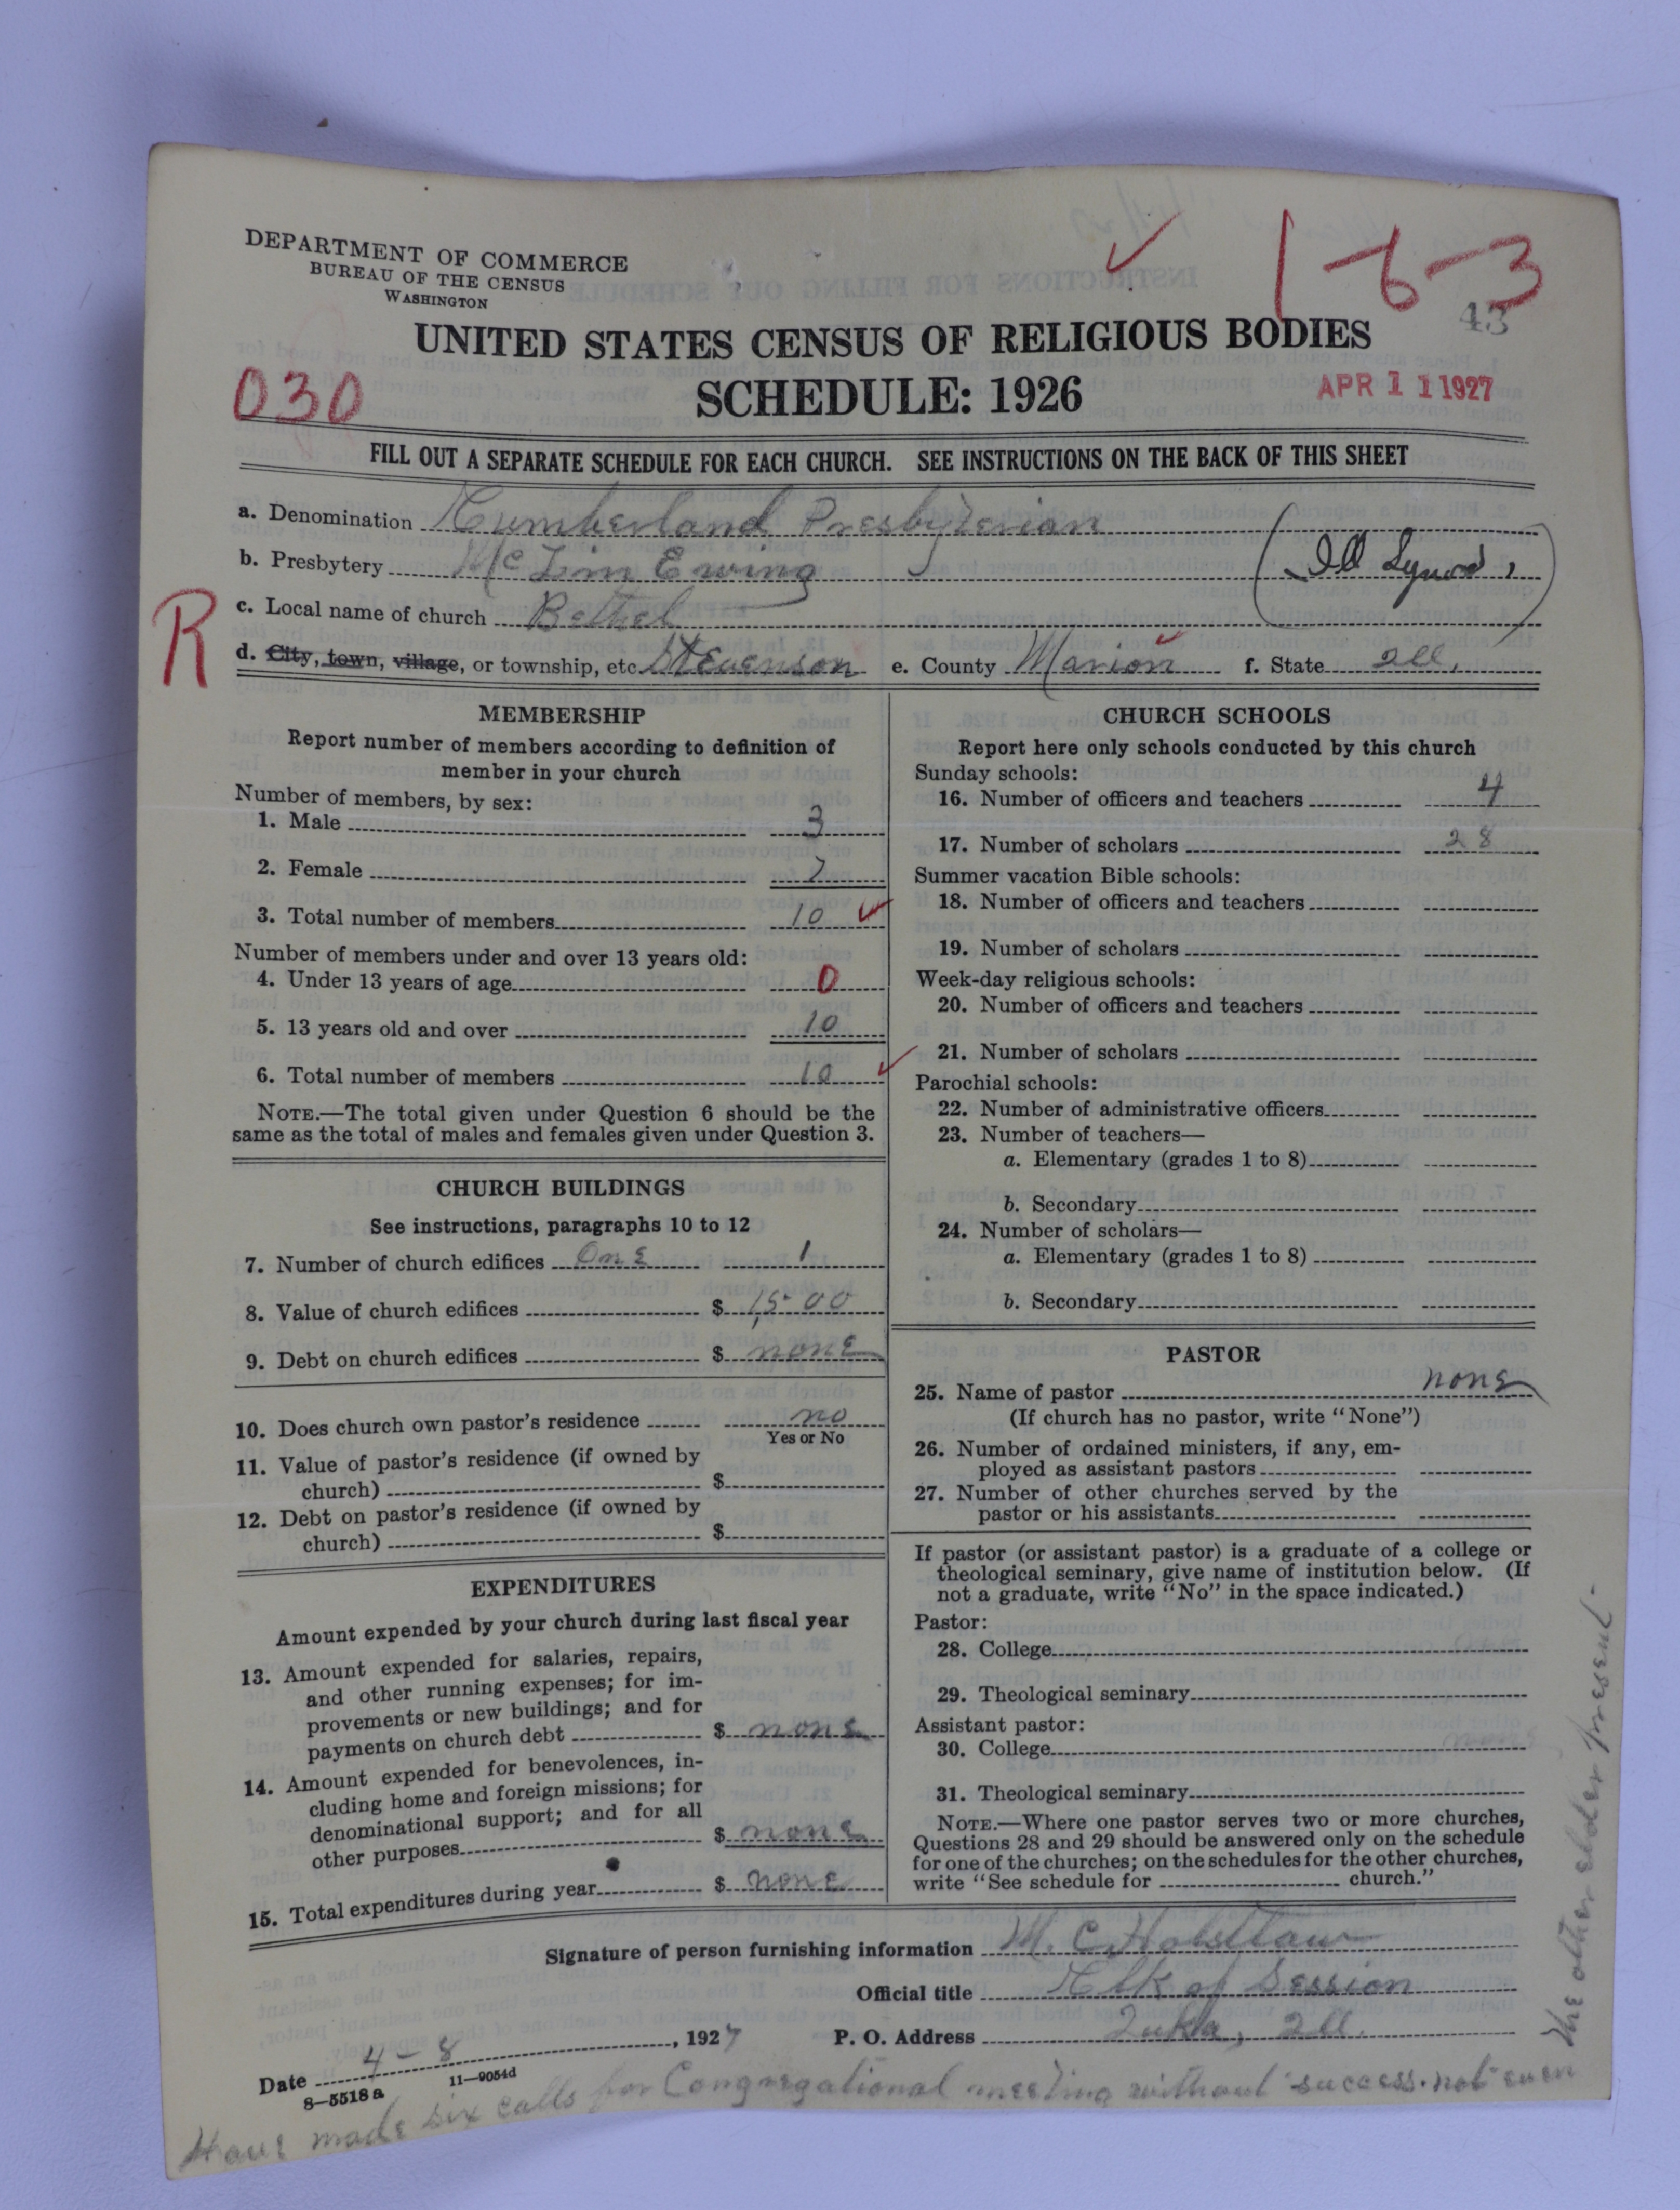 DEPARTMENT OF COMMERCE
BUREAU OF THE CENSUS
WASHINGTON
1-6-3
43
UNITED STATES CENSUS OF RELIGIOUS BODIES
SCHEDULE: 1926
030
APR 11 1927
FILL OUT A SEPARATE SCHEDULE FOR EACH CHURCH. SEE INSTRUCTIONS ON THE BACK OF THIS SHEET
a. Denomination Cumberland Presbyterian
b. Presbytery McLin Ewing (Ill Synod)
c. Local name of church Bethel
R
d. City, town, village, or township, etc. Stevenson e. County Marion f. State Ill.
MEMBERSHIP
Report number of members according to definition of
member in your church
Number of members, by sex:
1. Male 3
2. Female 7
3. Total number of members 10
Number of members under and over 13 years old:
4. Under 13 years of age 0
5. 13 years old and over 10
6. Total number of members 10
NOTE.—The total given under Question 6 should be the
same as the total of males and females given under Question 3.
CHURCH BUILDINGS
See instructions, paragraphs 10 to 12
7. Number of church edifices One 1
8. Value of church edifices $ 1,500
9. Debt on church edifices $ none
10. Does church own pastor's residence no
Yes or No
11. Value of pastor's residence (if owned by
church) $
12. Debt on pastor's residence (if owned by
church) $
EXPENDITURES
Amount expended by your church during last fiscal year
13. Amount expended for salaries, repairs,
and other running expenses; for im-
provements or new buildings; and for
payments on church debt $ none
14. Amount expended for benevolences, in-
cluding home and foreign missions; for
denominational support; and for all
other purposes $ none
15. Total expenditures during year $ none
CHURCH SCHOOLS
Report here only schools conducted by this church
Sunday schools:
16. Number of officers and teachers 4
17. Number of scholars 28
Summer vacation Bible schools:
18. Number of officers and teachers
19. Number of scholars
Week-day religious schools:
20. Number of officers and teachers
21. Number of scholars
Parochial schools:
22. Number of administrative officers
23. Number of teachers—
a. Elementary (grades 1 to 8)
b. Secondary
24. Number of scholars—
a. Elementary (grades 1 to 8)
b. Secondary
PASTOR
25. Name of pastor none
(If church has no pastor, write "None")
26. Number of ordained ministers, if any, em-
ployed as assistant pastors
27. Number of other churches served by the
pastor or his assistants
If pastor (or assistant pastor) is a graduate of a college or
theological seminary, give name of institution below. (If
not a graduate, write "No" in the space indicated.)
Pastor:
28. College
29. Theological seminary
Assistant pastor:
30. College
31. Theological seminary
NOTE.—Where one pastor serves two or more churches,
Questions 28 and 29 should be answered only on the schedule
for one of the churches; on the schedules for the other churches,
write "See schedule for church."
Signature of person furnishing information M. C. Holstlaw
Official title Clk of Session
Date 4-8, 1927 P. O. Address Iuka, Ill.
8-5518 a 11-9054d
Have made six calls for Congregational meeting without success. not even
the other elder present.